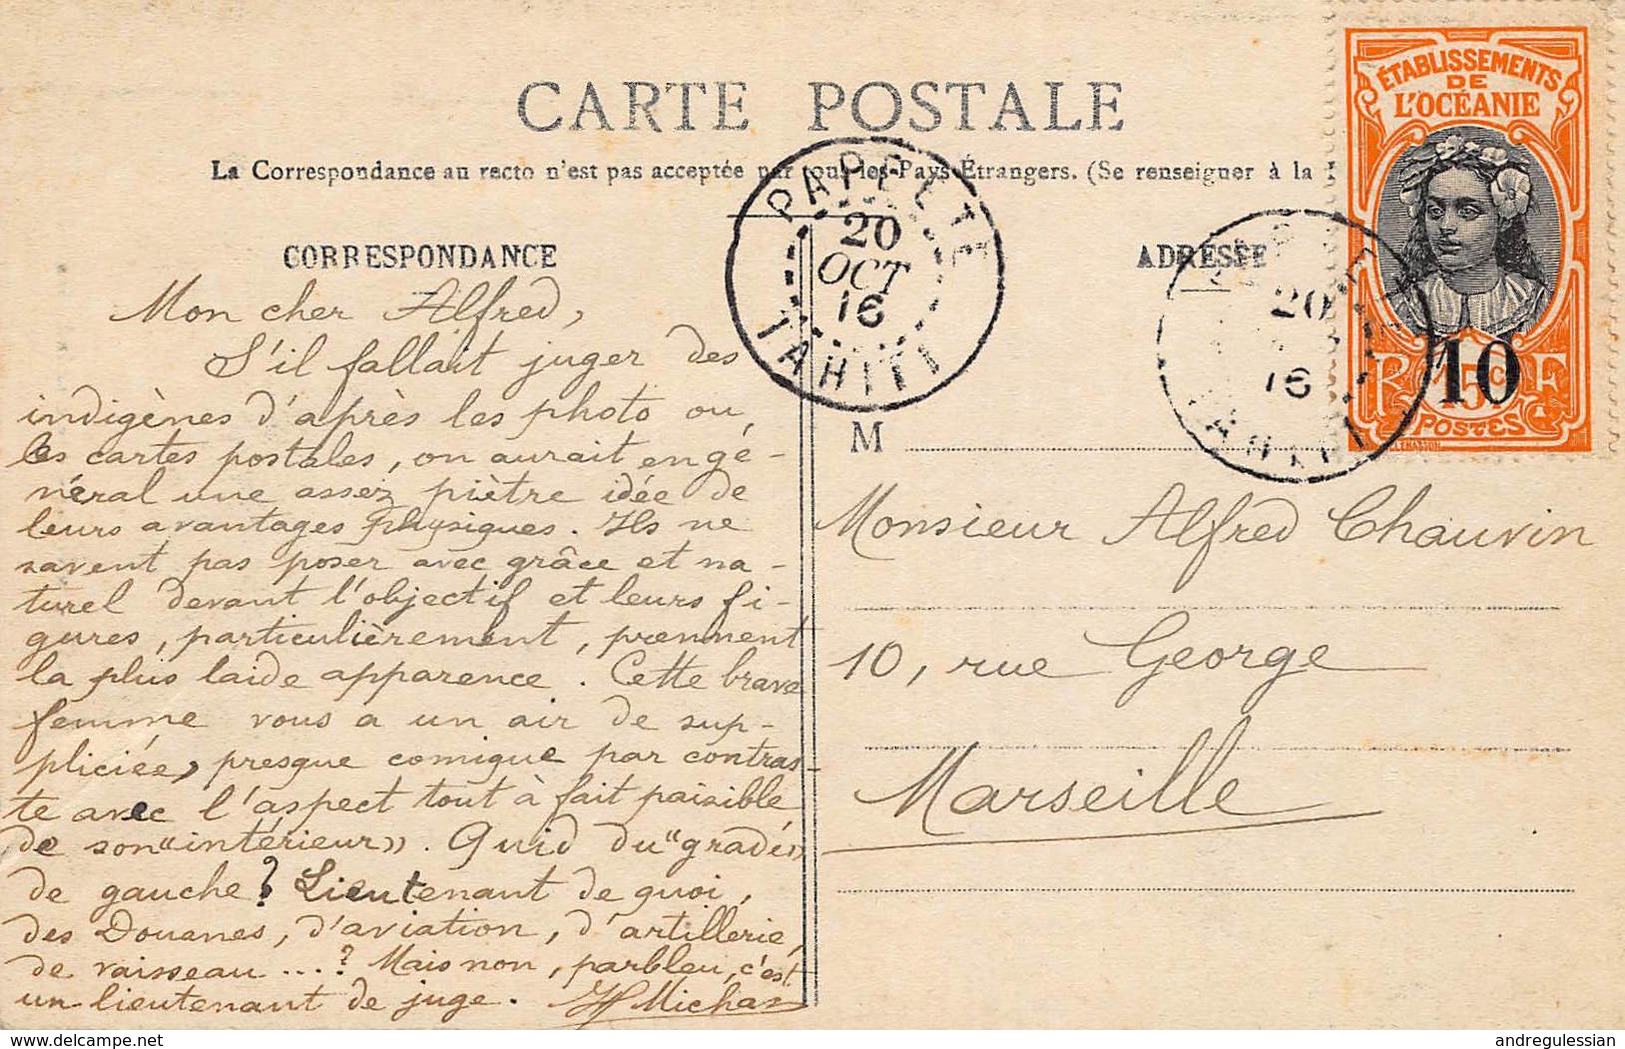 CARTE POSTALE
La Correspondance au recto n'est pas acceptée par tous les Pays Étrangers. (Se renseigner à la
CORRESPONDANCE
Mon cher Alfred,
S'il fallait juger des
indigènes d'après les photo ou,
les cartes postales, on aurait en gé-
néral une assez piètre idée de
leurs avantages physiques. Ils ne
savent pas poser avec grâce et na-
turel devant l'objectif et leurs fi-
gures, particulièrement, prennent
la plus laide apparence. Cette brave
femme vous a un air de sup-
pliciée, presque comique par contras-
te avec l'aspect tout à fait paisible
de son «intérieur». Quid du "gradé»
de gauche? Lieutenant de quoi,
des Douanes, d'aviation, d'artillerie,
de vaisseau ...? Mais non, parbleu, c'est
un lieutenant de juge. H Michas
PAPEETE
20
OCT
16
TAHITI
ADRESSE
20
16
TAHITI
ÉTABLISSEMENTS
DE
L'OCÉANIE
10
R 15c F
POSTES
M
Monsieur Alfred Chauvin
10, rue George
Marseille
andregulessian